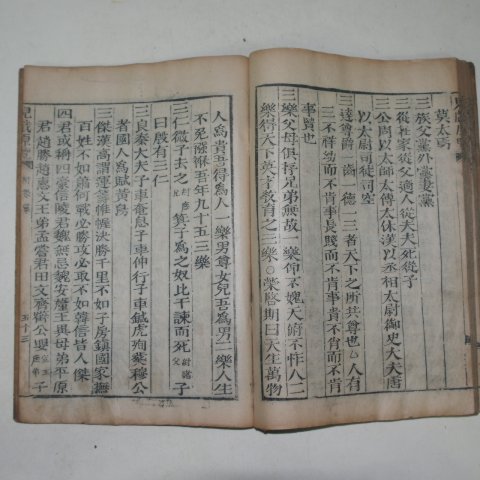 莫大焉
三族父黨外黨妻黨
三從在家從父適人從夫夫死從子
三公周以太師太傅太保漢以丞相太尉御史大夫唐
以太尉司徒司空
三達尊爵一齒一德一三者天下之所共尊也○人有
三不祥幼而不肯事長賤而不肯事貴不肖而不肯
事賢也
三樂父母俱存兄弟無故一樂仰不愧天俯不怍人二
樂得天下英才敎育之三樂○榮啓期曰天生萬物
人爲貴吾得爲人一樂男尊女卑吾爲男二樂人生
不免襁褓吾年九十五三樂
三仁微子去之紂庶兄箕子爲之奴比干諫而死紂諸父子
曰殷有三仁
三良秦大夫子車奄息子車仲行子車鍼虎殉葬穆公
者國人爲賦黃鳥
三傑漢高謂運籌帷幄決勝千里不如子房鎭國家撫
百姓不如蕭何戰必勝攻必取不如韓信皆人傑
四君或稱四豪信陵君魏無忌魏安釐王異母弟平原
君趙勝趙惠文王弟孟嘗君田文齊靖公嬰子
五十三